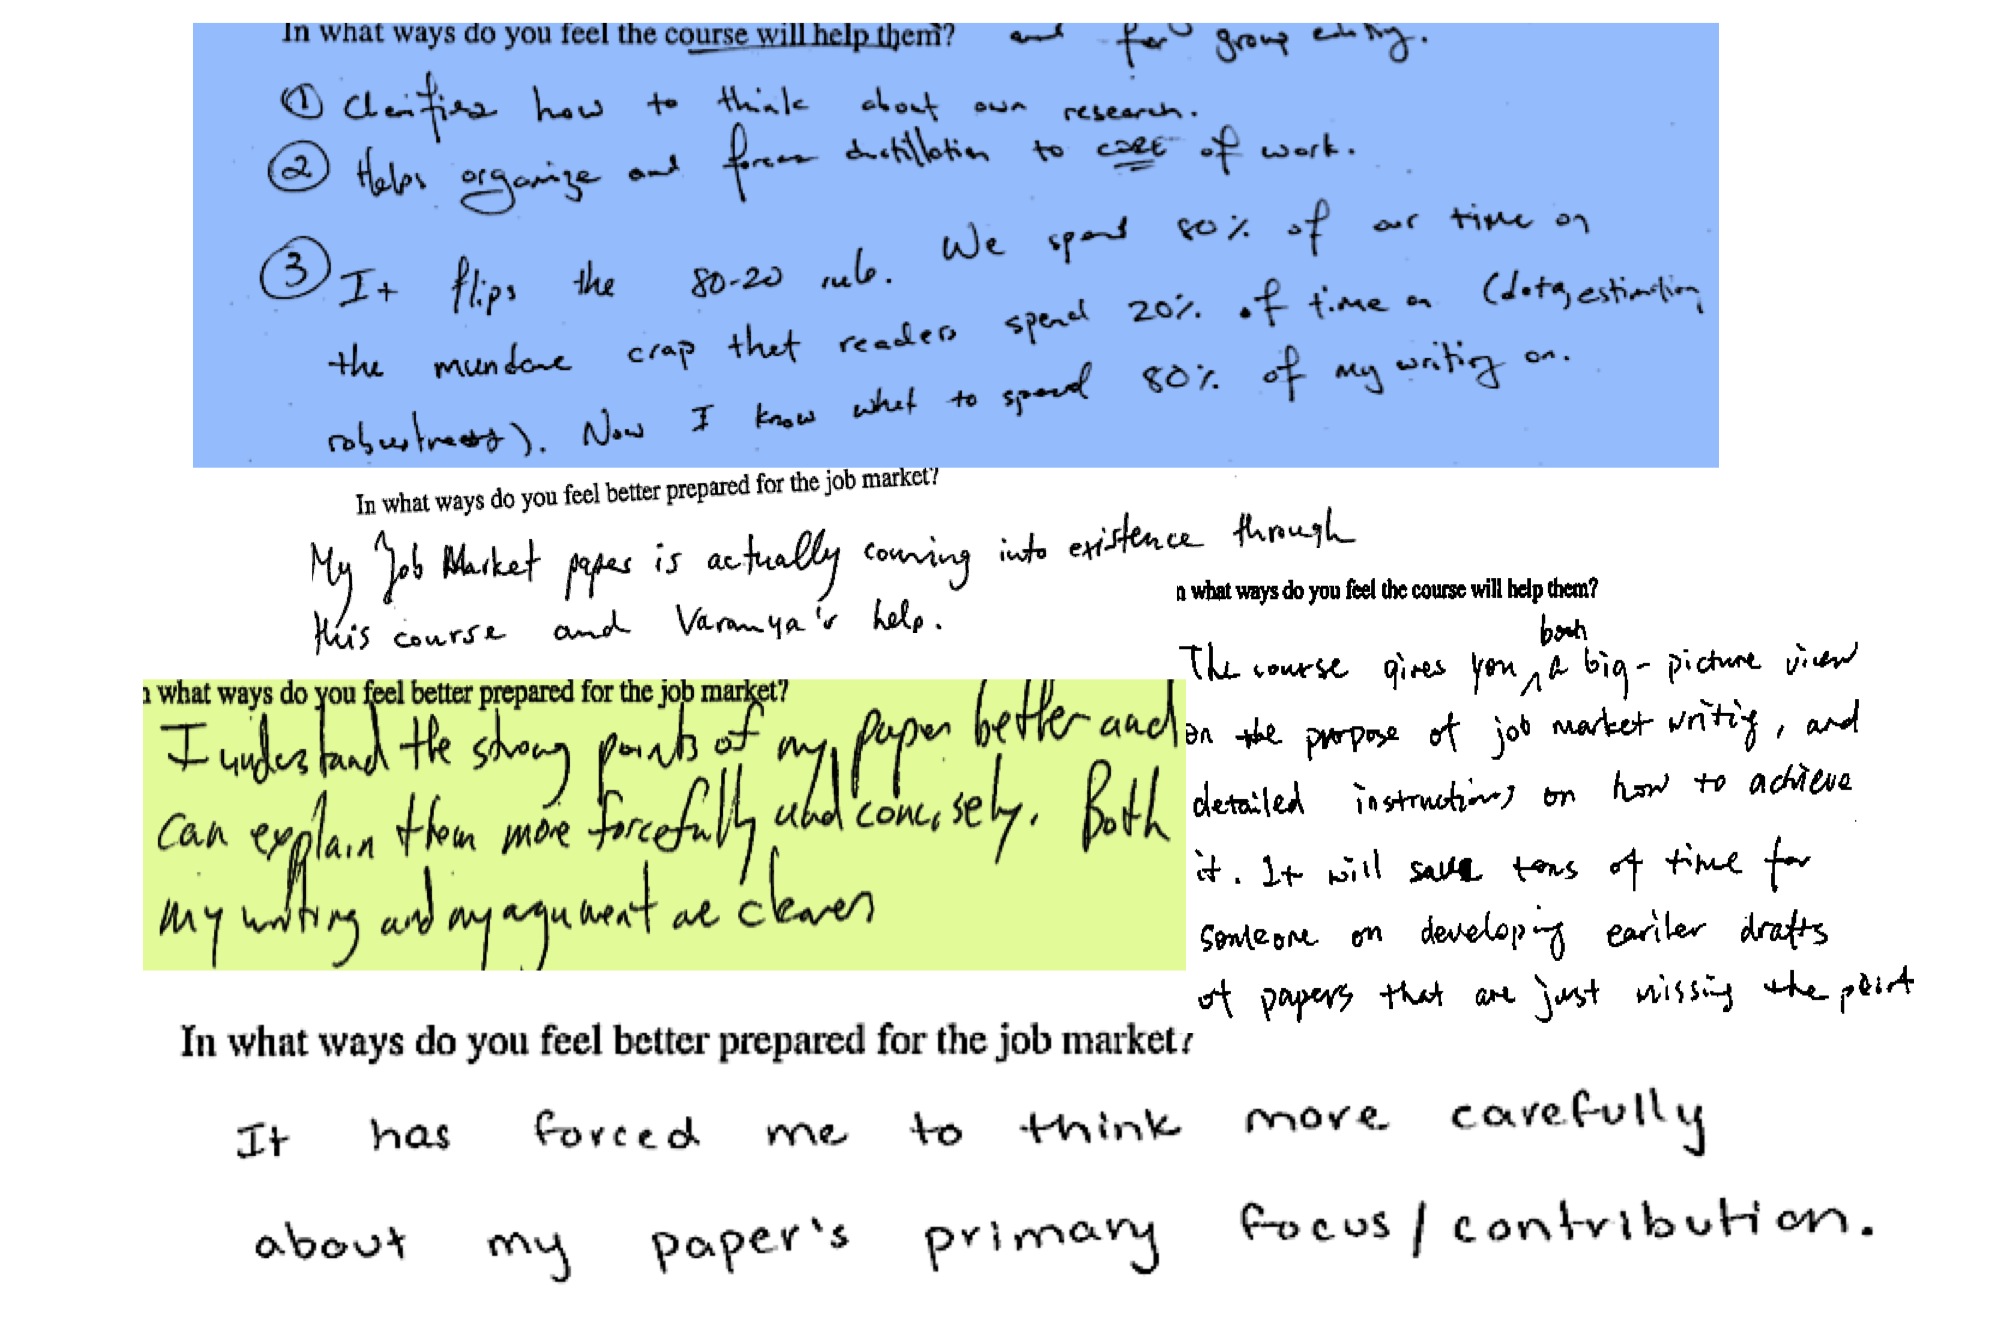 In what ways do you feel the course will help them? and for group editing.
① Clarifies how to think about own research.
② Helps organize and forces distillation to CORE of work.
③ It flips the 80-20 rule. We spend 80% of our time on
the mundane crap that readers spend 20% of time on (data, estimation,
robustness). Now I know what to spend 80% of my writing on.
In what ways do you feel better prepared for the job market?
My Job Market paper is actually coming into existence through
this course and Varanya's help.
n what ways do you feel better prepared for the job market?
I understand the strong points of my paper better and
can explain them more forcefully and concisely. Both
my writing and my agument are clearer
n what ways do you feel the course will help them?
both
The course gives you a big-picture view
on the purpose of job market writig, and
detailed instructions on how to achieve
it. It will save tons of time for
someone on developing eariler drafts
of papers that are just missing the point
In what ways do you feel better prepared for the job market?
It has forced me to think more carefully
about my paper's primary focus/contribution.